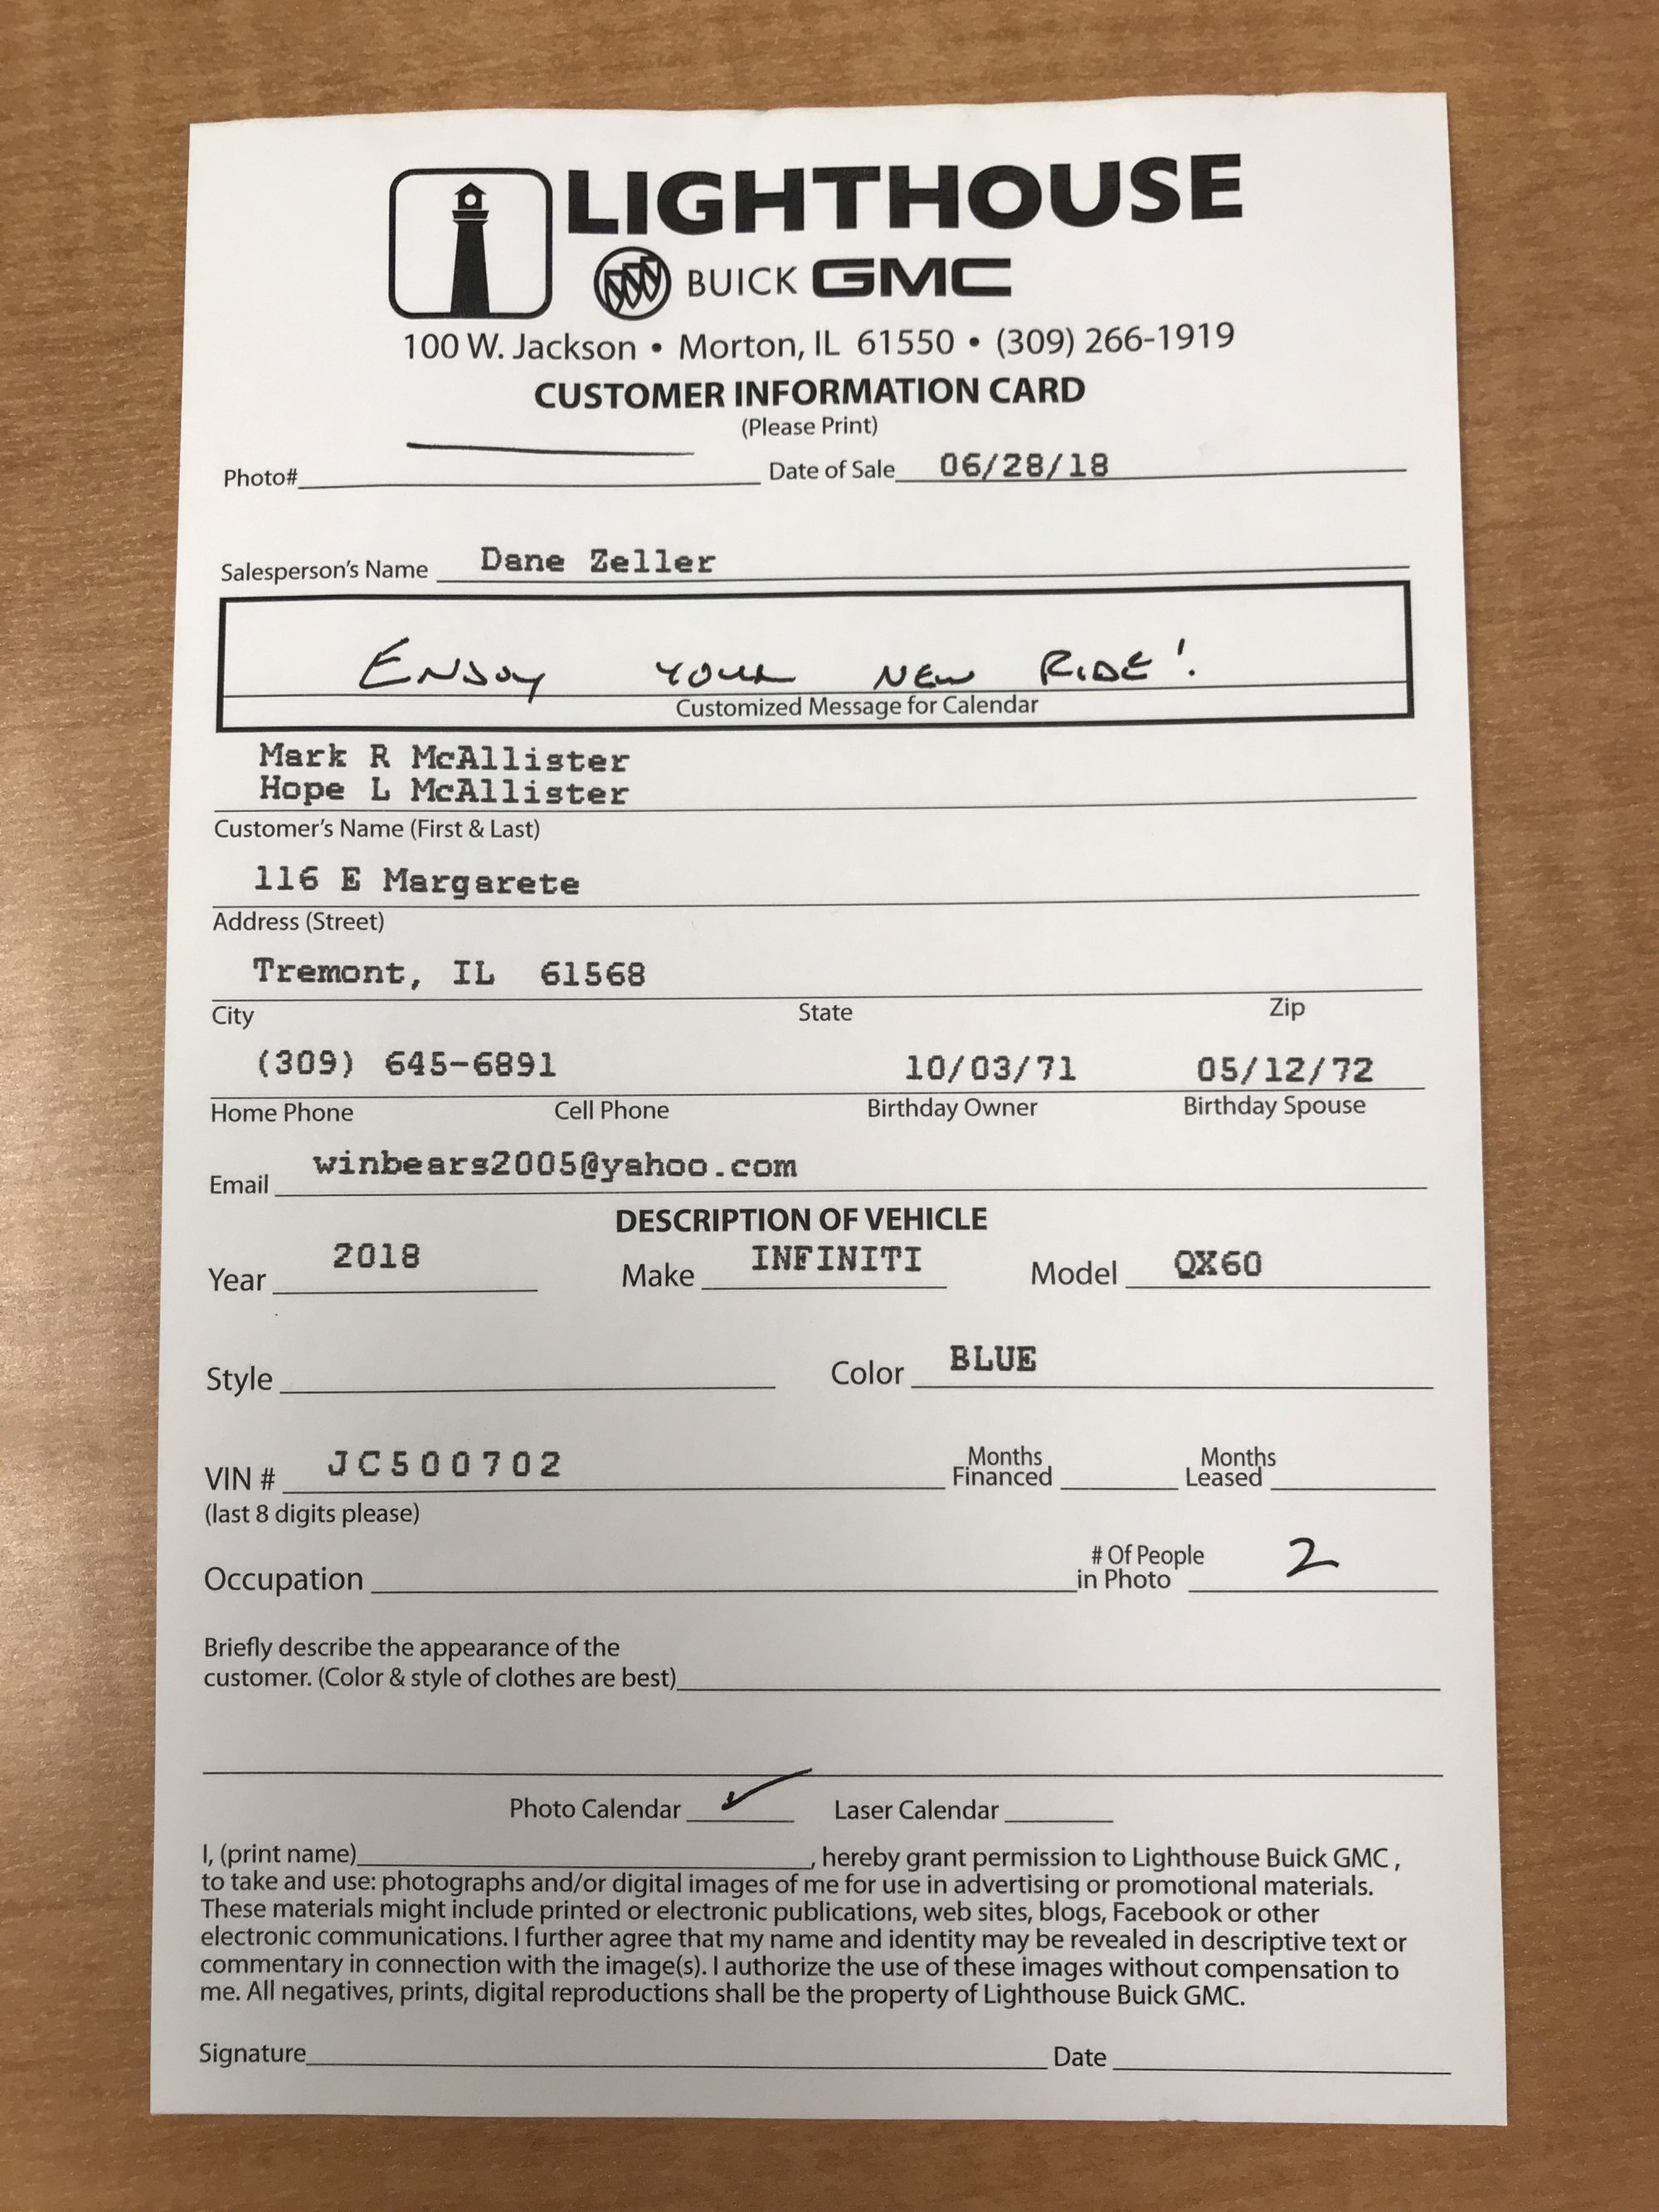 LIGHTHOUSE
BUICK GMC
100 W. Jackson • Morton, IL 61550 • (309) 266-1919
CUSTOMER INFORMATION CARD
(Please Print)
Photo# Date of Sale 06/28/18
Salesperson's Name Dane Zeller
ENJOY YOUR NEW RIDE!
Customized Message for Calendar
Mark R McAllister
Hope L McAllister
Customer's Name (First & Last)
116 E Margarete
Address (Street)
Tremont, IL 61568
City State Zip
(309) 645-6891 10/03/71 05/12/72
Home Phone Cell Phone Birthday Owner Birthday Spouse
Email winbears2005@yahoo.com
DESCRIPTION OF VEHICLE
Year 2018 Make INFINITI Model QX60
Style Color BLUE
VIN # JC500702 Months Financed Months Leased
(last 8 digits please)
Occupation # Of People in Photo 2
Briefly describe the appearance of the
customer. (Color & style of clothes are best)
Photo Calendar ✓ Laser Calendar
I, (print name) , hereby grant permission to Lighthouse Buick GMC ,
to take and use: photographs and/or digital images of me for use in advertising or promotional materials.
These materials might include printed or electronic publications, web sites, blogs, Facebook or other
electronic communications. I further agree that my name and identity may be revealed in descriptive text or
commentary in connection with the image(s). I authorize the use of these images without compensation to
me. All negatives, prints, digital reproductions shall be the property of Lighthouse Buick GMC.
Signature Date